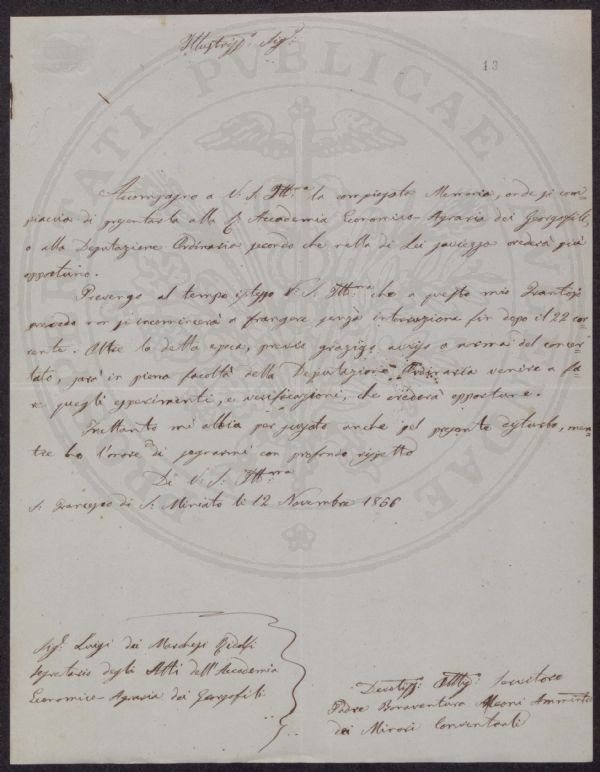 Illustriss.º Sig.r
13
Accompagno a V. S. Ill.ma la compiegata Memoria, onde si com=
piaccia di presentarla alla R. Accademia Economico-Agraria dei Georgofili,
o alla Deputazione Ordinaria secondo che nella di Lei saviezza crederà più
opportuno.
Prevengo al tempo istesso V. S. Ill.ma che a questo mio Frantojo
non si incomincerà a frangere senza interruzione fin dopo il 22 cor=
rente. Oltre la detta epoca, previo grazioso avviso a norma del concer=
tato, sarà in piena facoltà della Deputazione Ordinaria venire a fa=
re quegli esperimenti, e verificazioni, che crederà opportune.
Frattanto mi abbia per scusato anche pel presente disturbo, men=
tre ho l'onore di segnarmi con profondo rispetto
Di V. S. Ill.ma
S. Francesco di S. Miniato li 12 Novembre 1866
Sig.r Luigi dei Marchesi Ridolfi
Segretario degli Atti dell'Accademia
Economico-Agraria dei Georgofili
Devotiss. Obblig. Servitore
Padre Bonaventura Meoni
dei Minori Conventuali
PUBLICAE